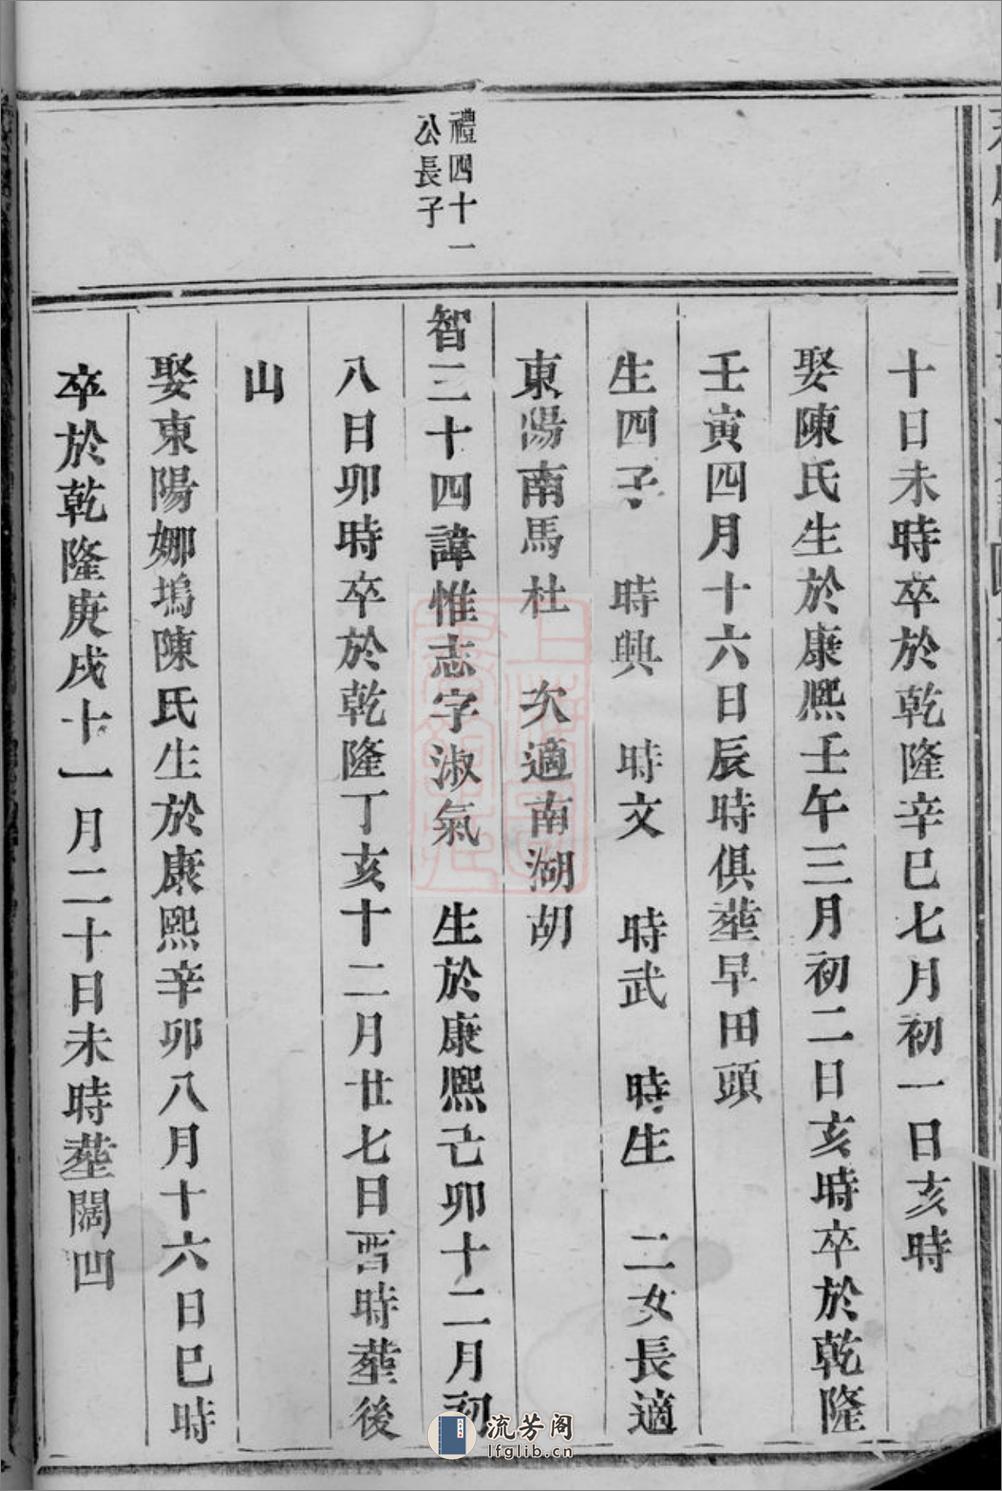 十日未時卒於乾隆辛巳七月初一日亥時
娶陳氏生於康熈壬午三月初二日亥時卒於乾隆
壬寅四月十六日辰時俱塟早田頭
生四子 時興 時文 時武 時生 二女長適
東陽南馬杜 次適南湖胡
禮四十一
公長子
智三十四諱惟志字淑氣 生於康熈己卯十二月初
八日卯時卒於乾隆丁亥十二月廿七日酉時塟後
山
娶東陽娜塢陳氏生於康熙辛卯八月十六日巳時
卒於乾隆庚戌十一月二十日未時塟闊凹
流芳阁
lfglib.cn